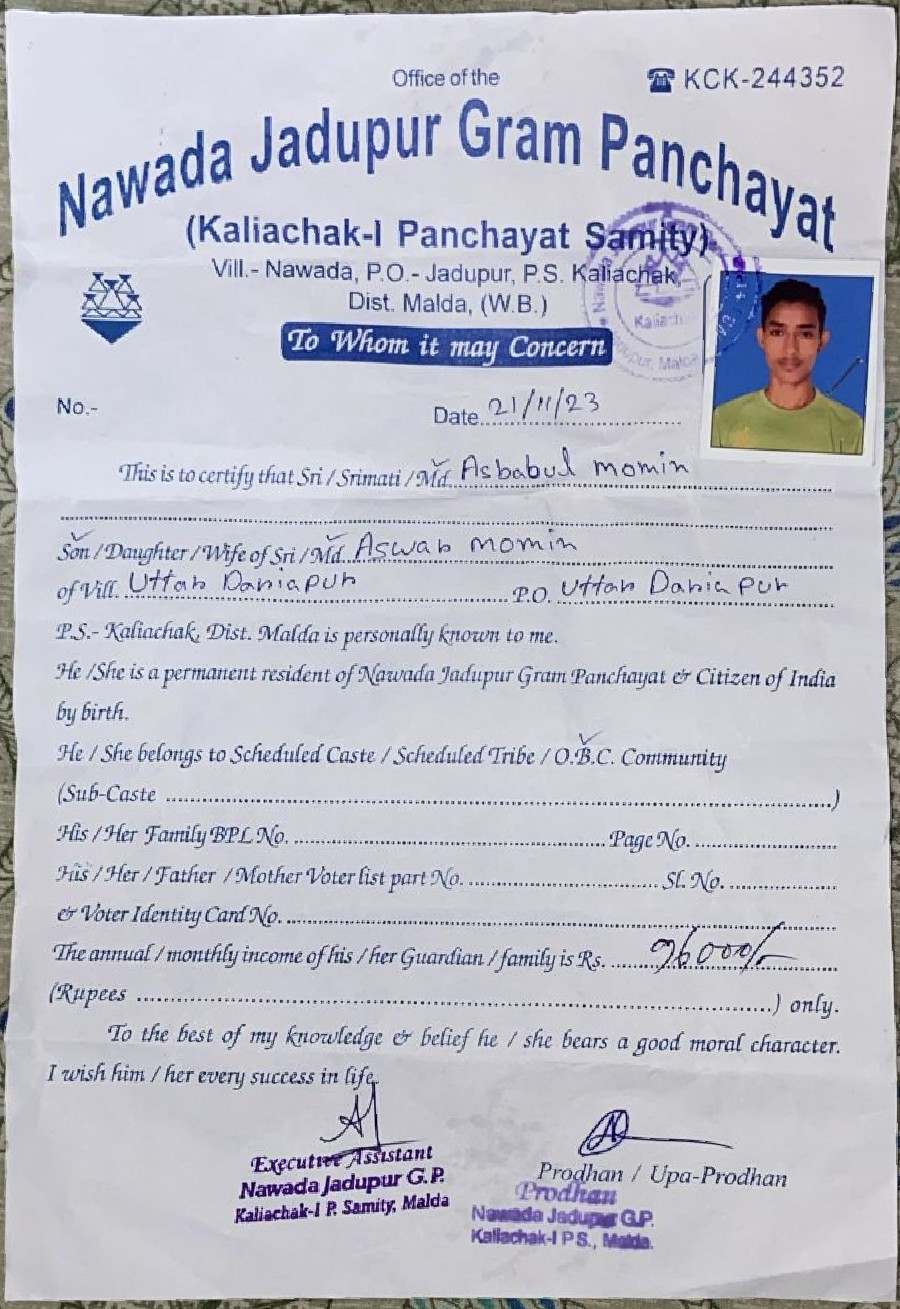 Office of the
☎ KCK-244352
Nawada Jadupur Gram Panchayat
(Kaliachak-I Panchayat Samity)
Vill.- Nawada, P.O.- Jadupur, P.S. Kaliachak,
Dist. Malda, (W.B.)
To Whom it may Concern
No.-
Date 21/11/23
This is to certify that Sri / Srimati / Md. Asbabul momin
Son / Daughter / Wife of Sri / Md. Aswab momin
of Vill. Uttar Dariapur P.O. Uttar Dariapur
P.S.- Kaliachak, Dist. Malda is personally known to me.
He /She is a permanent resident of Nawada Jadupur Gram Panchayat & Citizen of India
by birth.
He / She belongs to Scheduled Caste / Scheduled Tribe / O.B.C. Community
(Sub-Caste ........)
His / Her Family BPL No. ........ Page No. ........
His / Her / Father / Mother Voter list part No. ........ Sl. No. ........
& Voter Identity Card No. ........
The annual / monthly income of his / her Guardian / family is Rs. 96000/-
(Rupees ........) only.
To the best of my knowledge & belief he / she bears a good moral character.
I wish him / her every success in life.
Executive Assistant
Nawada Jadupur G.P.
Kaliachak-I P. Samity, Malda
Prodhan / Upa-Prodhan
Prodhan
Nawada Jadupur G.P.
Kaliachak-I P.S., Malda.